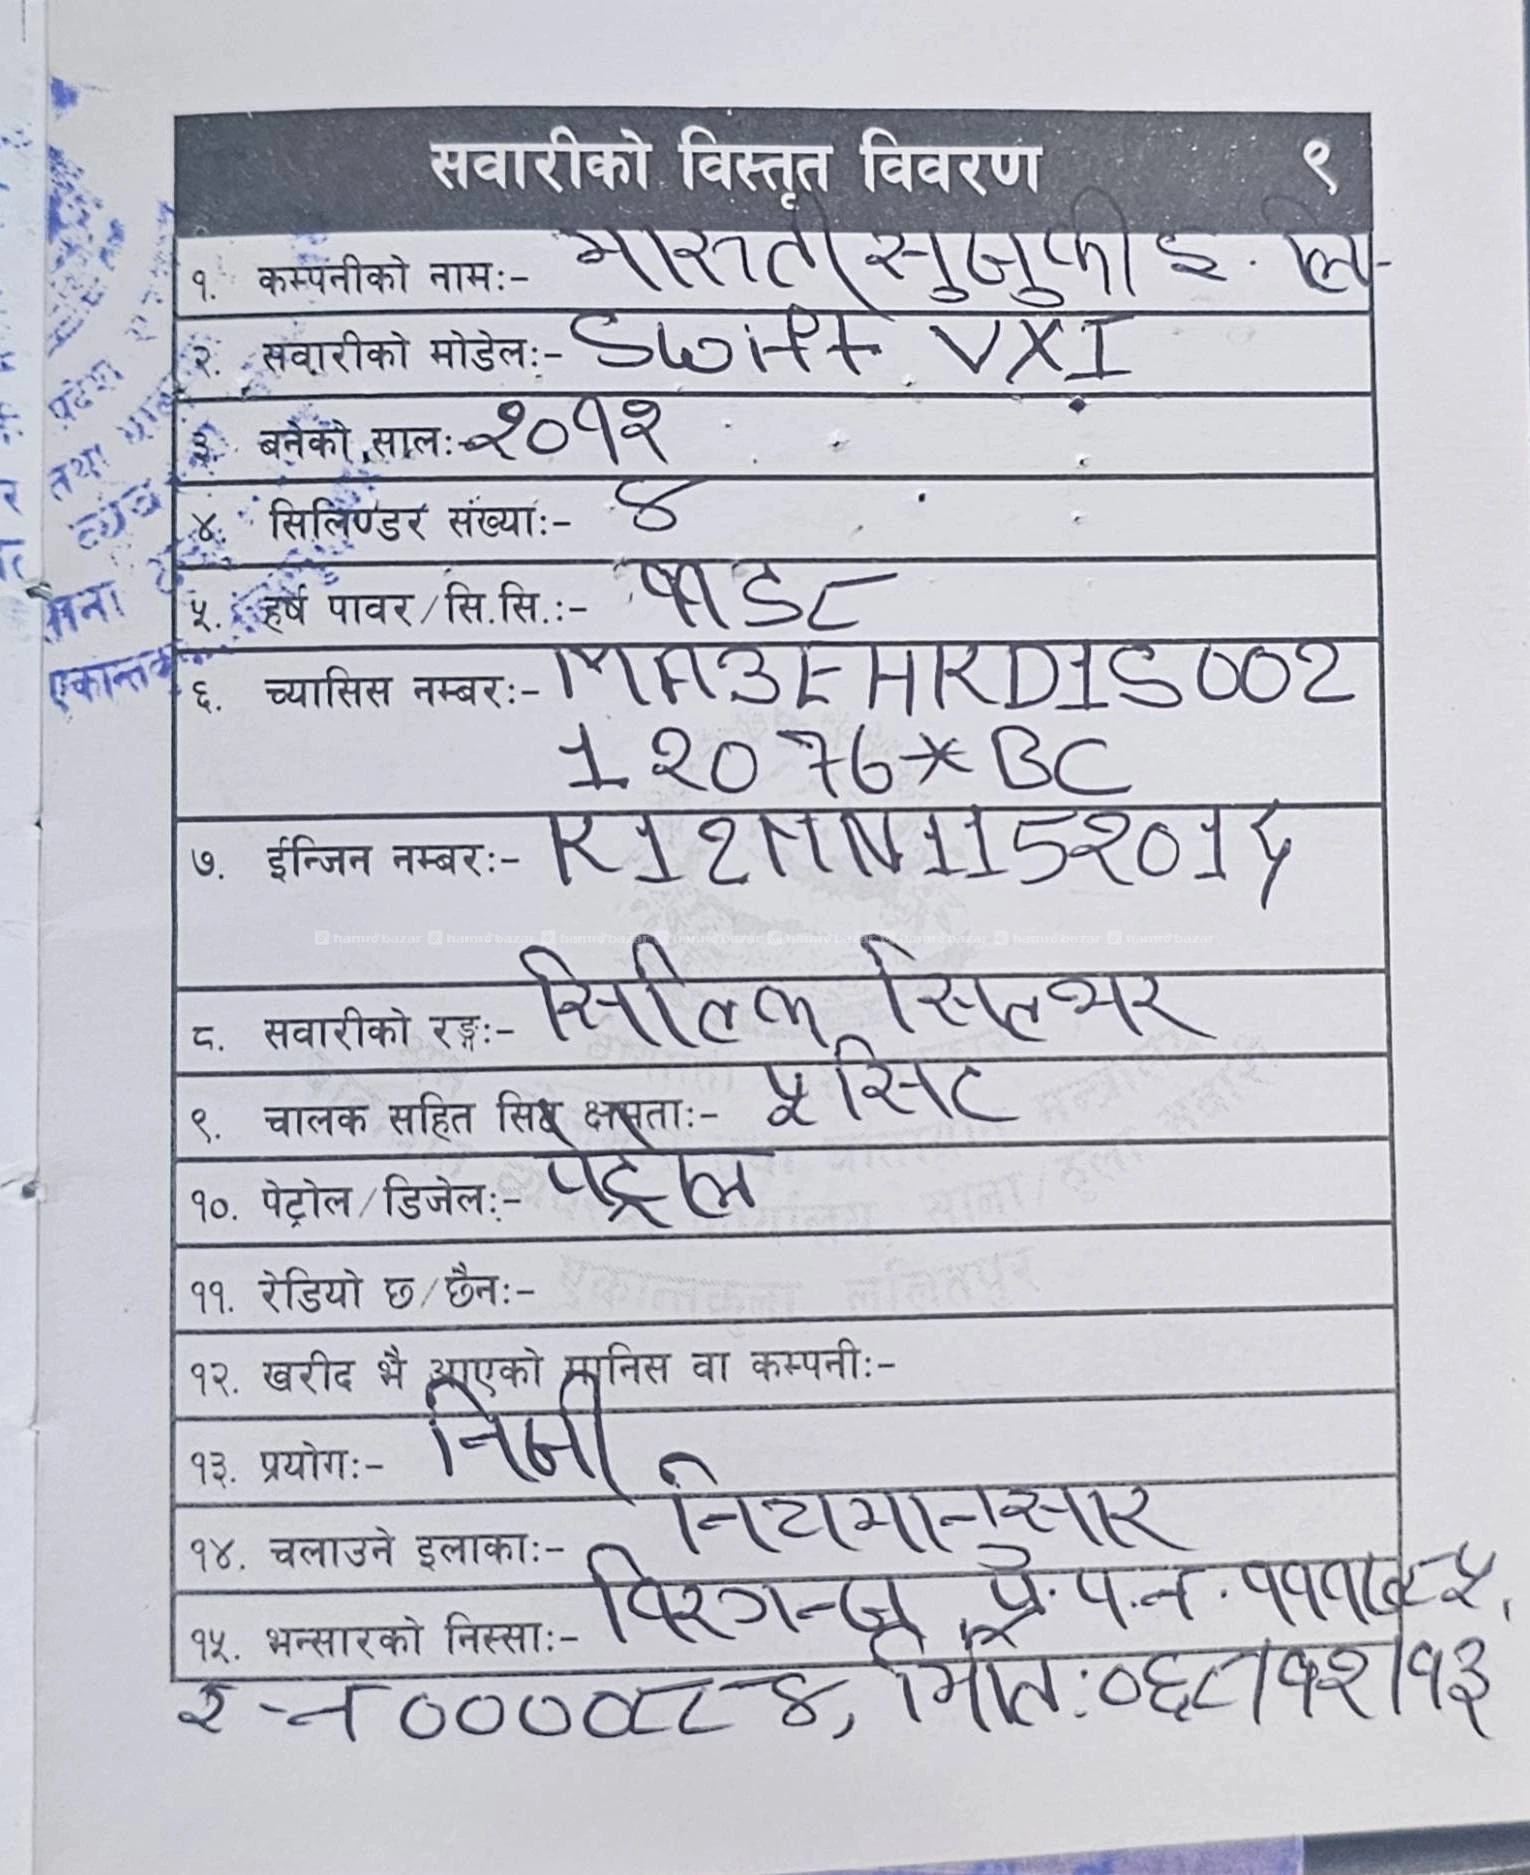 सवारीको विस्तृत विवरण ९
१. कम्पनीको नाम:- मारुती सुजुकी इ. लि-
२. सवारीको मोडेल:- Swift VXI
३. बनेको साल:- २०१२
४. सिलिण्डर संख्या:- ४
५. हर्ष पावर/सि.सि.:-
६. च्यासिस नम्बर:- MA3FHKD1S002
12076*BC
७. ईन्जिन नम्बर:-
hamrobazar hamrobazar hamrobazar hamrobazar hamrobazar hamrobazar hamrobazar hamrobazar
८. सवारीको रङ्ग:- सिल्कि सिल्भर
९. चालक सहित सिट क्षमता:- ५ सिट
१०. पेट्रोल/डिजेल:- पेट्रोल
११. रेडियो छ/छैन:-
१२. खरीद भै आएको मानिस वा कम्पनी:-
१३. प्रयोग:- निजी
१४. चलाउने इलाका:- नियमानुसार
१५. भन्सारको निस्सा:- विरगन्ज प्र.प.न.
र-न ००००८८-४, मिति:०६८।१२।१३
प्रदेश
तथा
एकान्त